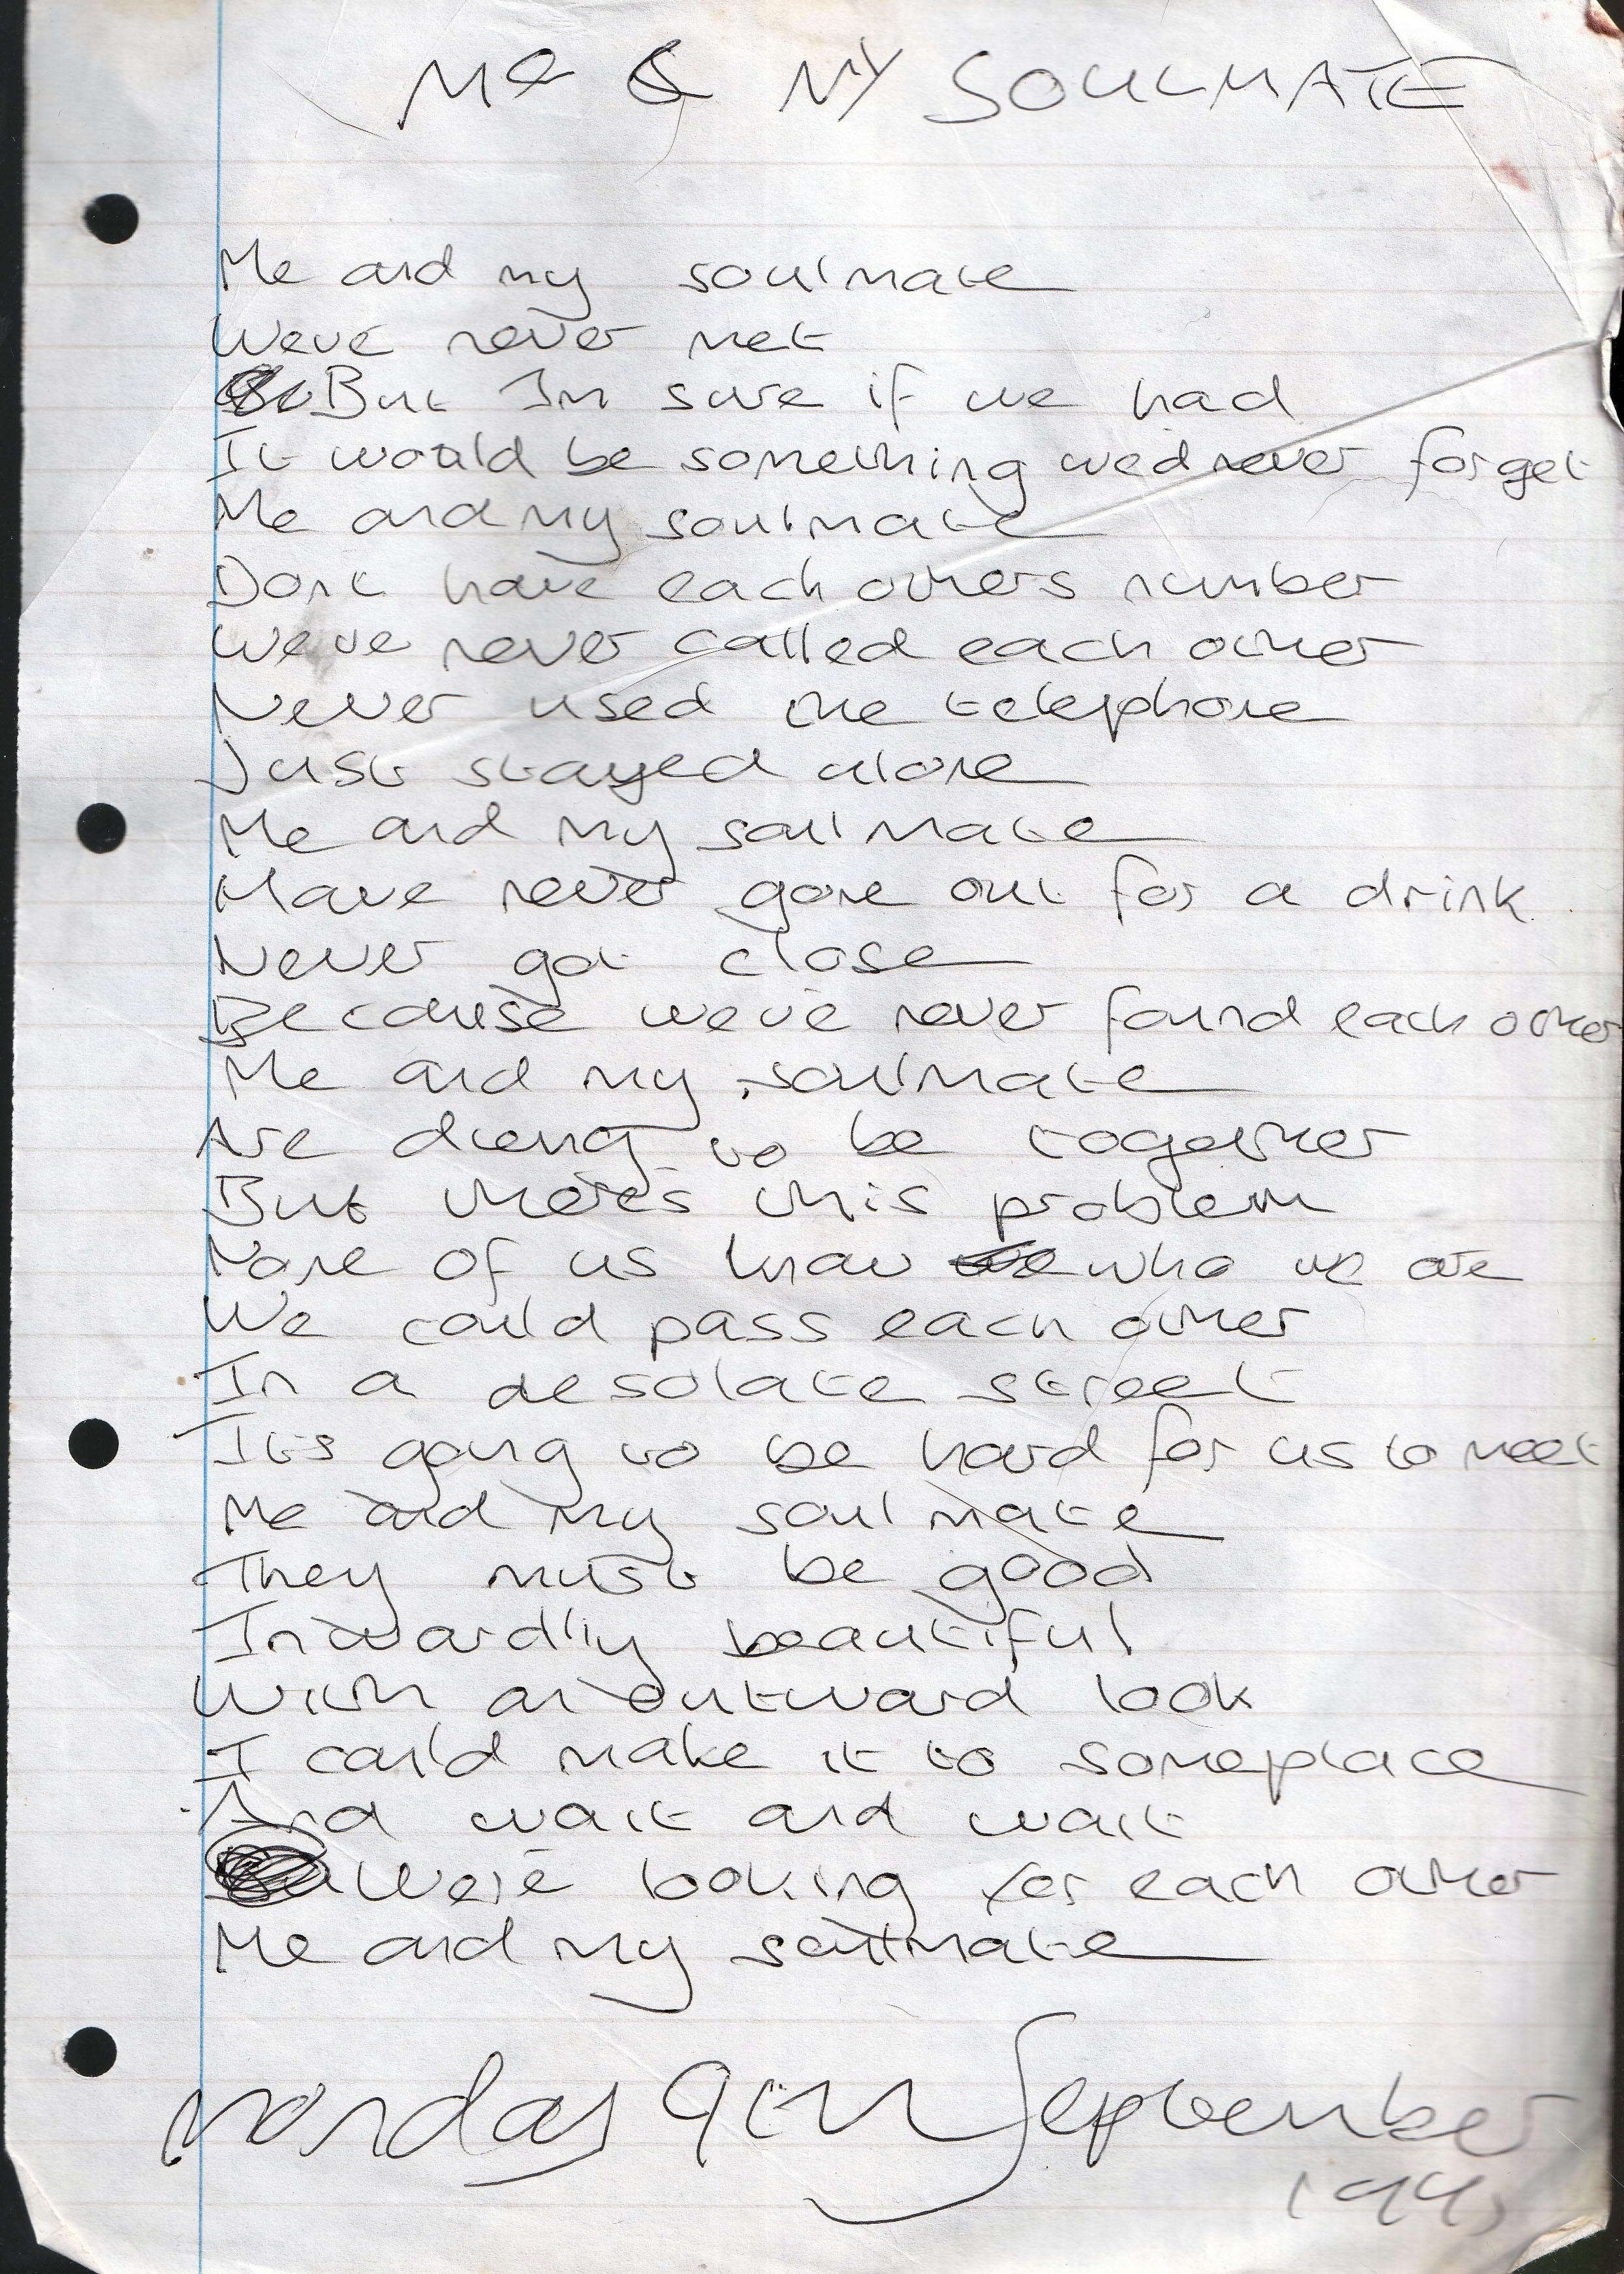 Me & MY SOULMATE
Me and my soulmate
Weve never met
But Im sure if we had
It would be something wed never forget
Me and my soulmate
Dont have each others number
Weve never called each other
Never used the telephone
Just stayed alone
Me and my soulmate
Have never gone out for a drink
Never got close
Because we've never found each other
Me and my soulmate
Are dieing to be together
But there's this problem
None of us know who we are
We could pass each other
In a desolate street
Its going to be hard for us to meet
Me and my soulmate
They must be good
Inwardly beautiful
With an outward look
I could make it to someplace
And wait and wait
We're looking for each other
Me and my soulmate
Monday 9th September